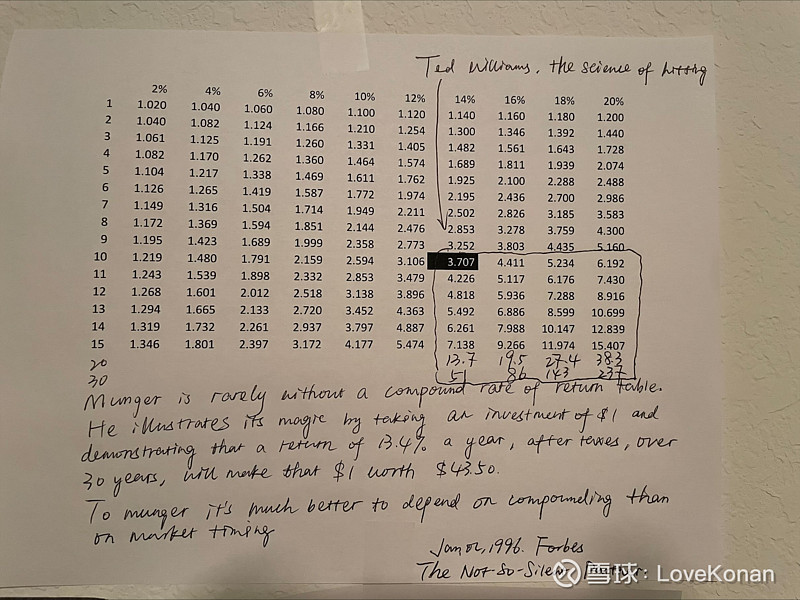 Ted Williams, the science of hitting
2% 4% 6% 8% 10% 12% 14% 16% 18% 20%
1 1.020 1.040 1.060 1.080 1.100 1.120 1.140 1.160 1.180 1.200
2 1.040 1.082 1.124 1.166 1.210 1.254 1.300 1.346 1.392 1.440
3 1.061 1.125 1.191 1.260 1.331 1.405 1.482 1.561 1.643 1.728
4 1.082 1.170 1.262 1.360 1.464 1.574 1.689 1.811 1.939 2.074
5 1.104 1.217 1.338 1.469 1.611 1.762 1.925 2.100 2.288 2.488
6 1.126 1.265 1.419 1.587 1.772 1.974 2.195 2.436 2.700 2.986
7 1.149 1.316 1.504 1.714 1.949 2.211 2.502 2.826 3.185 3.583
8 1.172 1.369 1.594 1.851 2.144 2.476 2.853 3.278 3.759 4.300
9 1.195 1.423 1.689 1.999 2.358 2.773 3.252 3.803 4.435 5.160
10 1.219 1.480 1.791 2.159 2.594 3.106 3.707 4.411 5.234 6.192
11 1.243 1.539 1.898 2.332 2.853 3.479 4.226 5.117 6.176 7.430
12 1.268 1.601 2.012 2.518 3.138 3.896 4.818 5.936 7.288 8.916
13 1.294 1.665 2.133 2.720 3.452 4.363 5.492 6.886 8.599 10.699
14 1.319 1.732 2.261 2.937 3.797 4.887 6.261 7.988 10.147 12.839
15 1.346 1.801 2.397 3.172 4.177 5.474 7.138 9.266 11.974 15.407
20 13.7 19.5 27.4 38.3
30 51 86 143 237
Munger is rarely without a compound rate of return table.
He illustrates its magic by taking an investment of $1 and
demonstrating that a return of 13.4% a year, after taxes, over
30 years, will make that $1 worth $43.50.
To munger it's much better to depend on compounding than
on market timing
Jan 02, 1996. Forbes
The Not-So-Silent
雪球：LoveKonan